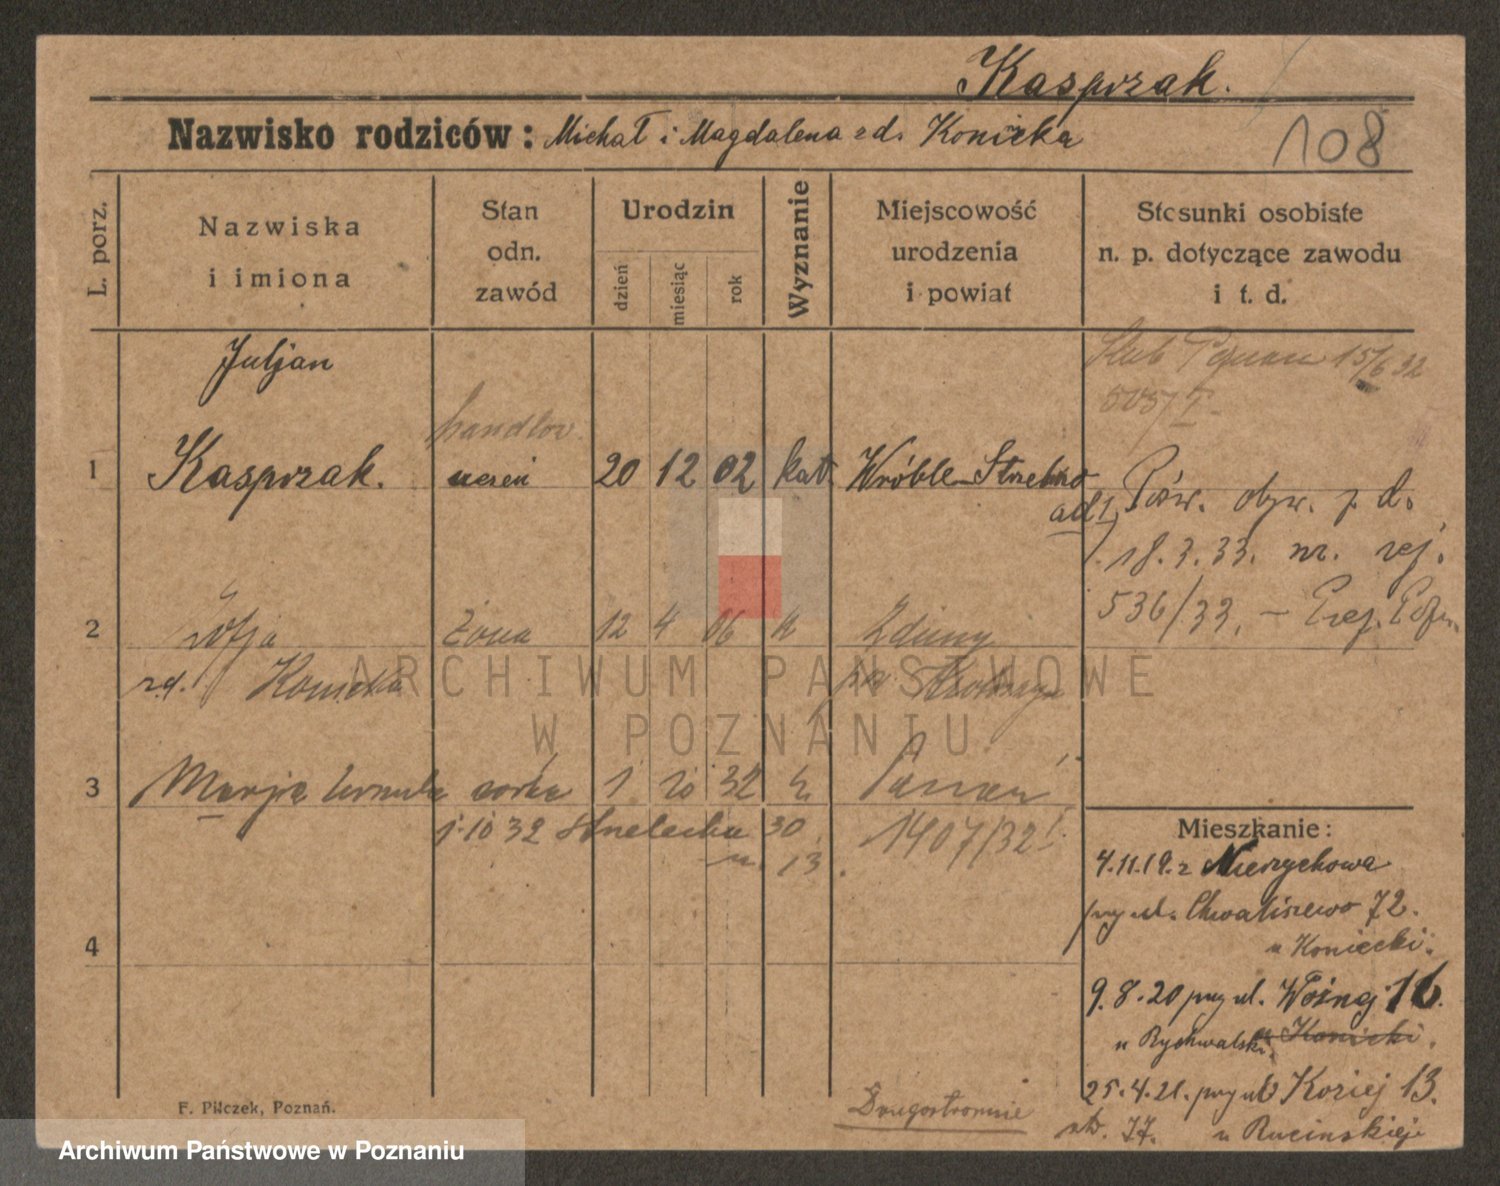 Kasprzak.
Nazwisko rodziców: Michał i Magdalena zd. Konieczka
108
L. porz.
Nazwiska i imiona
Stan odn. zawód
Urodzin
dzień
miesiąc
rok
Wyznanie
Miejscowość urodzenia i powiat
Stosunki osobiste n. p. dotyczące zawodu i t. d.
Juljan
Ślub Poznań 15/6 32
handlow.
1 Kasprzak. uczeń 20 12 02 kat. Wróble-Strzelno
ad 1, Pośw. obyw. p. d.
18.3.33. nr. rej.
536/33. –
2 Zofja żona 12 4 06 k Zduny
zd.
3 Marja Urszula córka 1 10 32 k Poznań
1.10 32 Strzelecka 30 1407/32
m. 13.
4
Mieszkanie:
4.11.19. z Nieszychowa
przy ul. Chwaliszewo 72.
u Koniecki.
9.8.20 przy ul. Woźnej 16.
u Rychwalski u Konicki.
25.4.21. przy ul. Koziej 13.
u Rucinskiej
Drugostronnie
F. Pilczek, Poznań.
ARCHIWUM PAŃSTWOWE
W POZNANIU
Archiwum Państwowe w Poznaniu